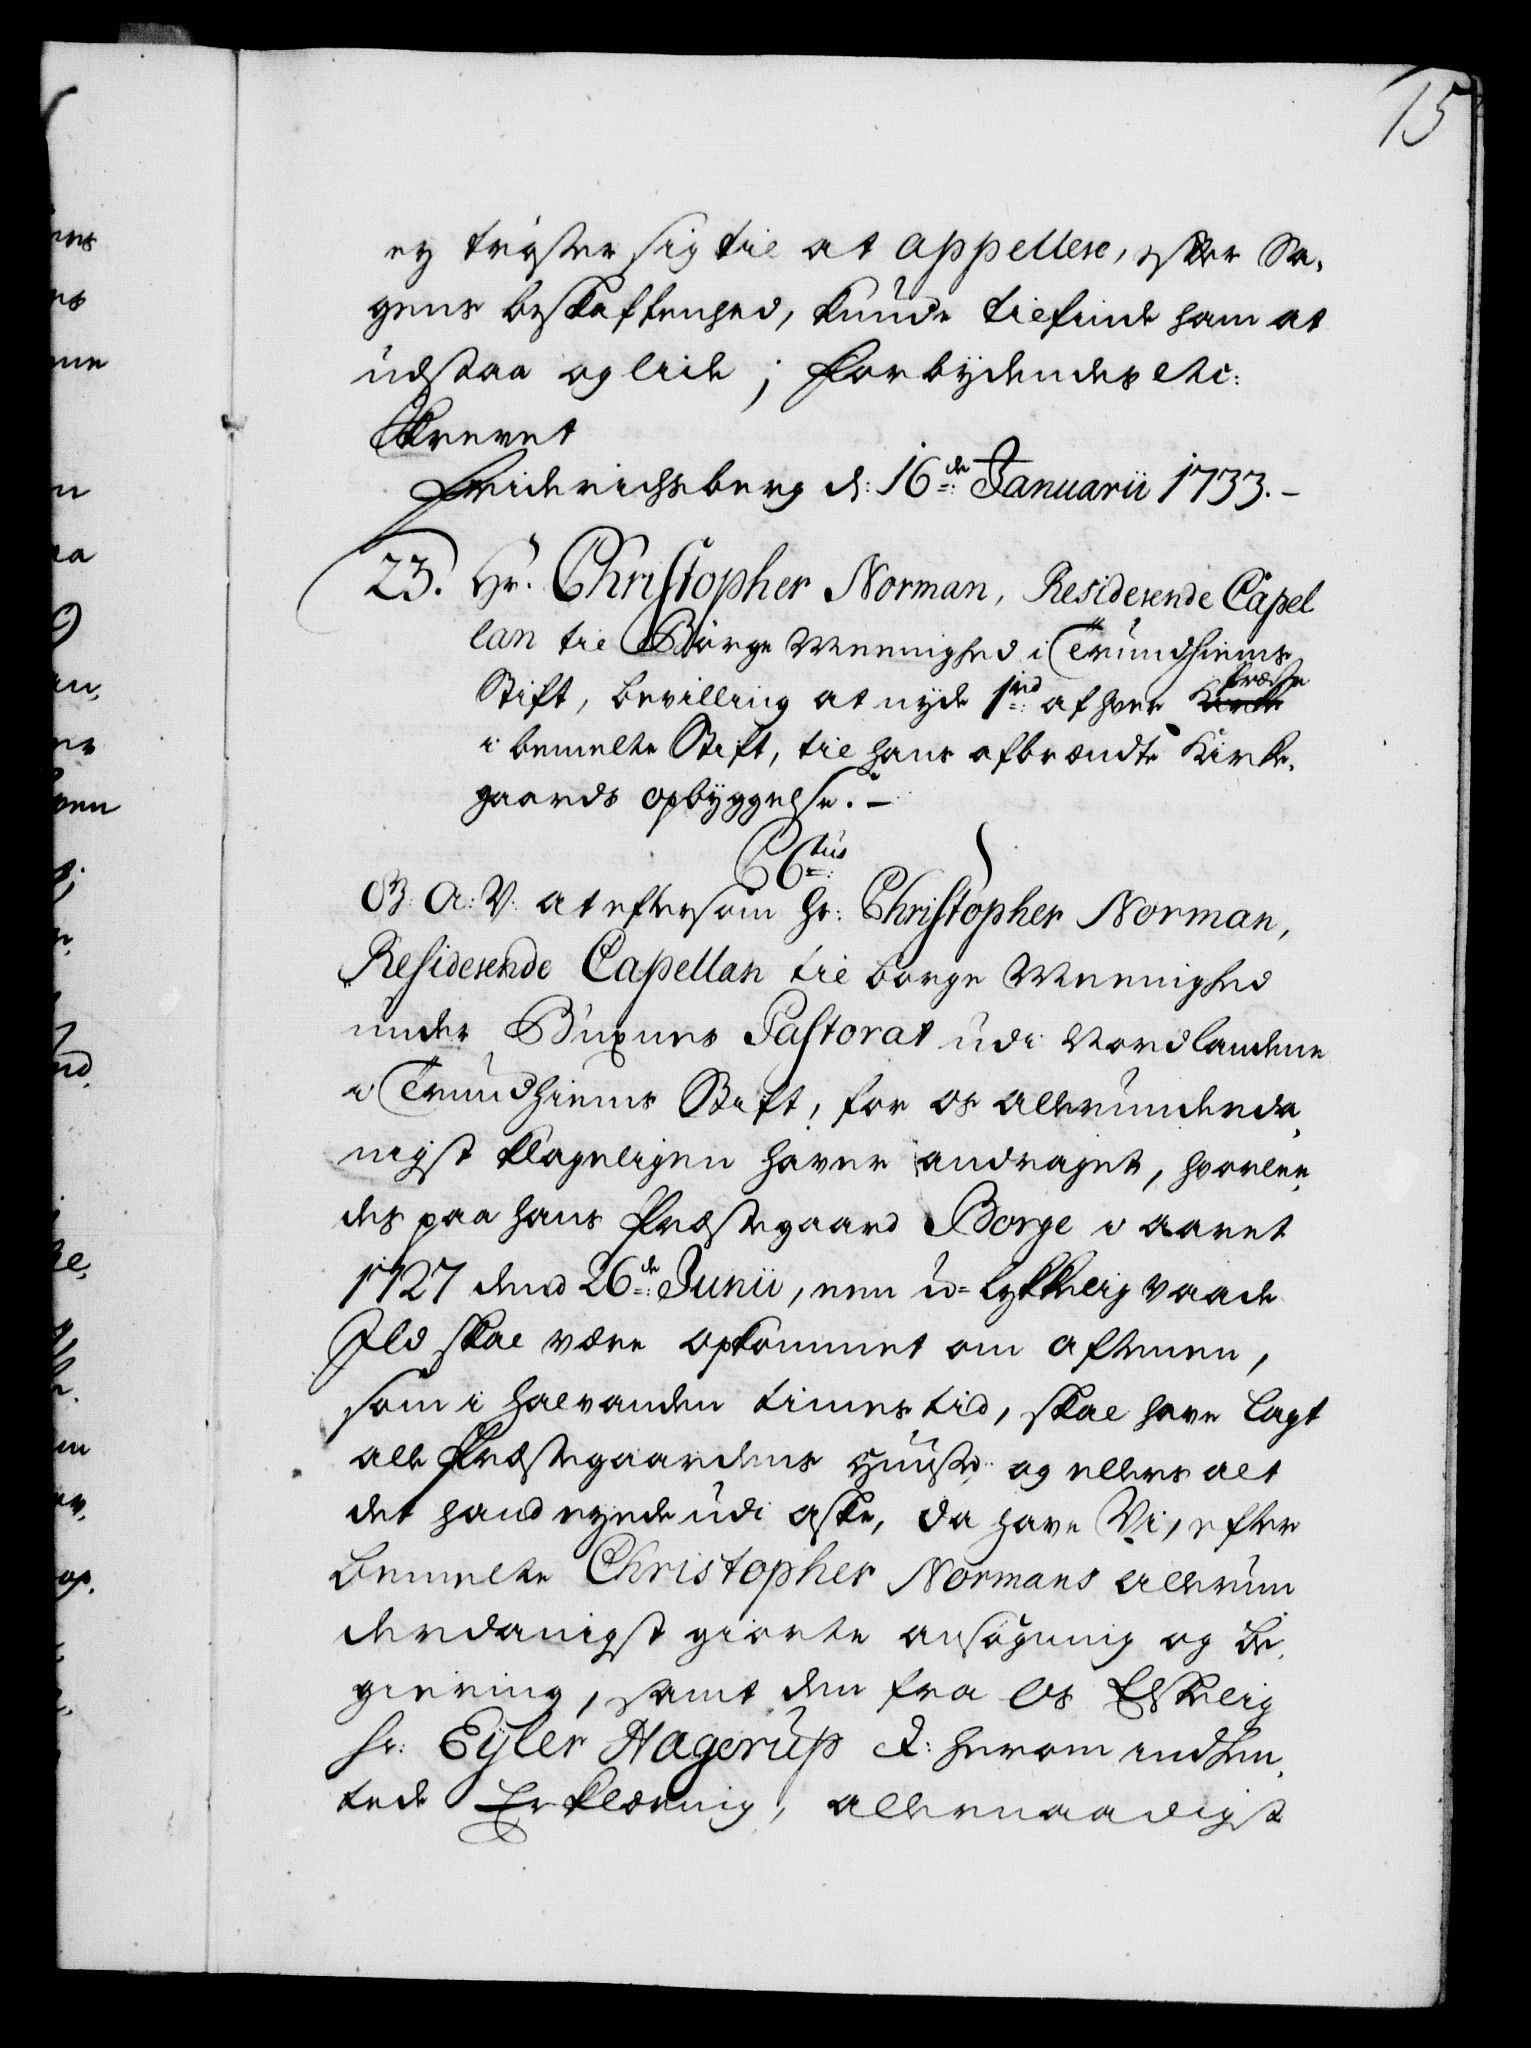 15
ey trøster sig til at appellere, efter Sa,
gens beskaffenhed, kunde tilfinde ham at
udstaa og lide; Forbydendes etc:
Skrevet
Friderichsberg d: 16de Januarii 1733. -
23. Hr. Christopher Norman, Residerende Capel
lan til Børge Meenighed i Trundhiems
Stift, bevilling at nyde 1rd af hver Kirke Præst
i bemelte Stift, til hans afbrændte Kirke,
gaards opbyggelse. -
C6tus
G: A: V: at eftersom Hr: Christopher Norman,
Residerende Capellan til borge Meenighed
under Buxnes Pastorat udi Nordlandene
i Trundhiems Stift, for os allerunderda,
nigst klageligen haver andraget, hvorlee,
des paa hans Præstegaard Borge i aaret
1727 dend 26de Junii, een u=lykkelig vaade
Ild skal være opkommet om aftenen,
som i halvanden times tid, skal have lagt
alle Præstegaardens Huuse og ellers alt
det hand eyede udi aske, da have Vi, efter
bemelte Christopher Normans allerun
derdanigst giorte ansøgning og be,
giering, samt den fra Os Elskelig
Hr: Eyler Hagerup &: herom indhen,
tede Erklæring, allernaadigst